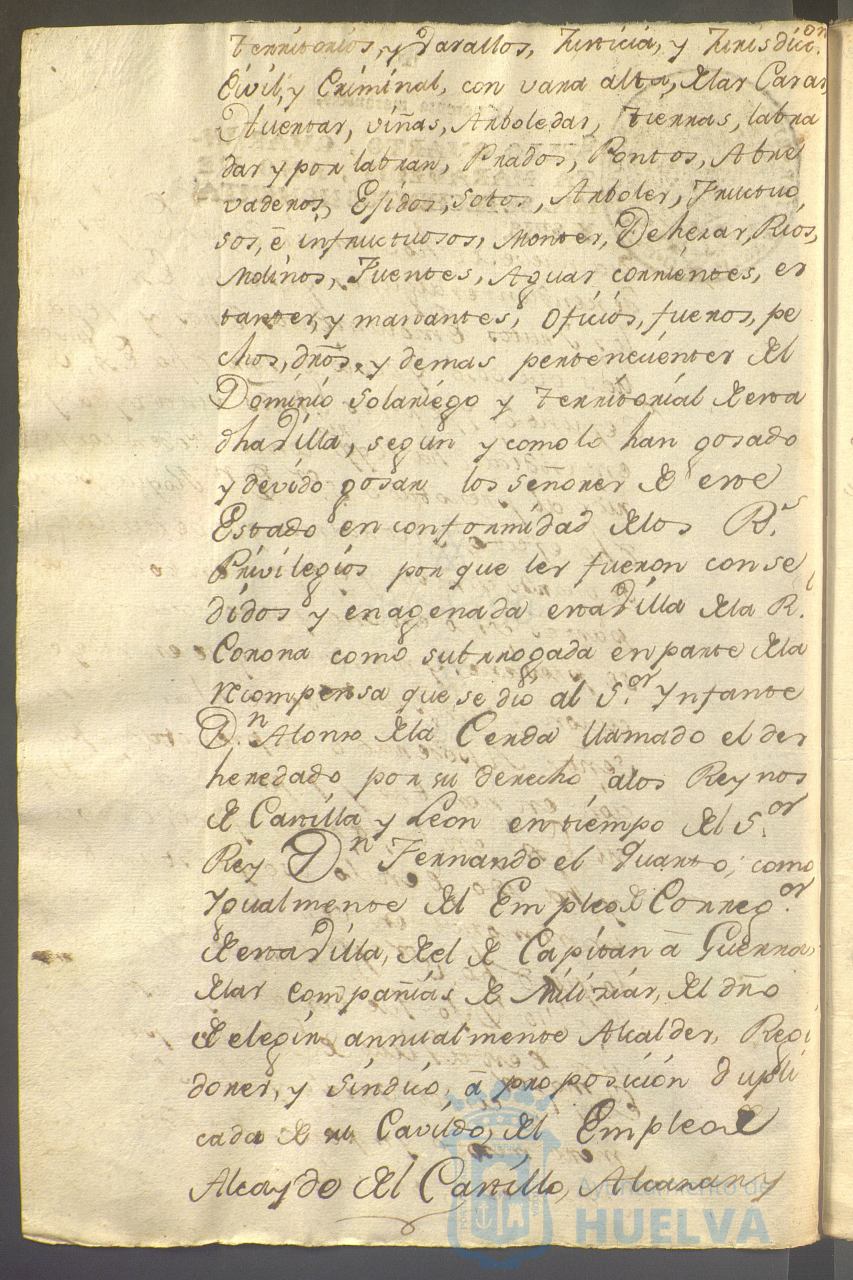 territorios, y Vasallos, Justicia, y Jurisdicc.on
Civil, y Criminal, con vara alta, de las Casas,
Huertas, viñas, Arboledas, tierras, labra
das y por labrar, Prados, Pastos, Abre
vaderos, Egidos, sotos, Arboles, Fructuo
sos, e infructuosos, Montes, Dehesas, Rios,
Molinos, Fuentes, Aguas corrientes, es
tantes, y manantes, Oficios, fueros, pe
chos, dros, y demas pertenecientes del
Dominio solariego y territorial de esta
dha Villa, segun y como lo han gosado
y devido gosar los señores de este
Estado en conformidad de los R.s
Privilegios por que les fueron conse
didos y enagenada esta Villa de la R.l
Corona como subrrogada en parte de la
recompensa que se dió al S.or Ynfante
D.n Alonso de la Cerda llamado el des
heredado por su derecho a los Reynos
de Castilla y Leon en tiempo del S.or
Rey D.n Fernando el Quarto; como
Ygualmente del Empleo de Correg.or
de esta Villa, del de Capitan â Guerra,
de las compañias de Milizias, del dro
de elegir annualmente Alcaldes, Regi
dores, y Sindico, â proposicion dupli
cada de su Cavildo, del Empleo de
Alcayde del Castillo, Alcazar y
Ayuntamiento de
HUELVA